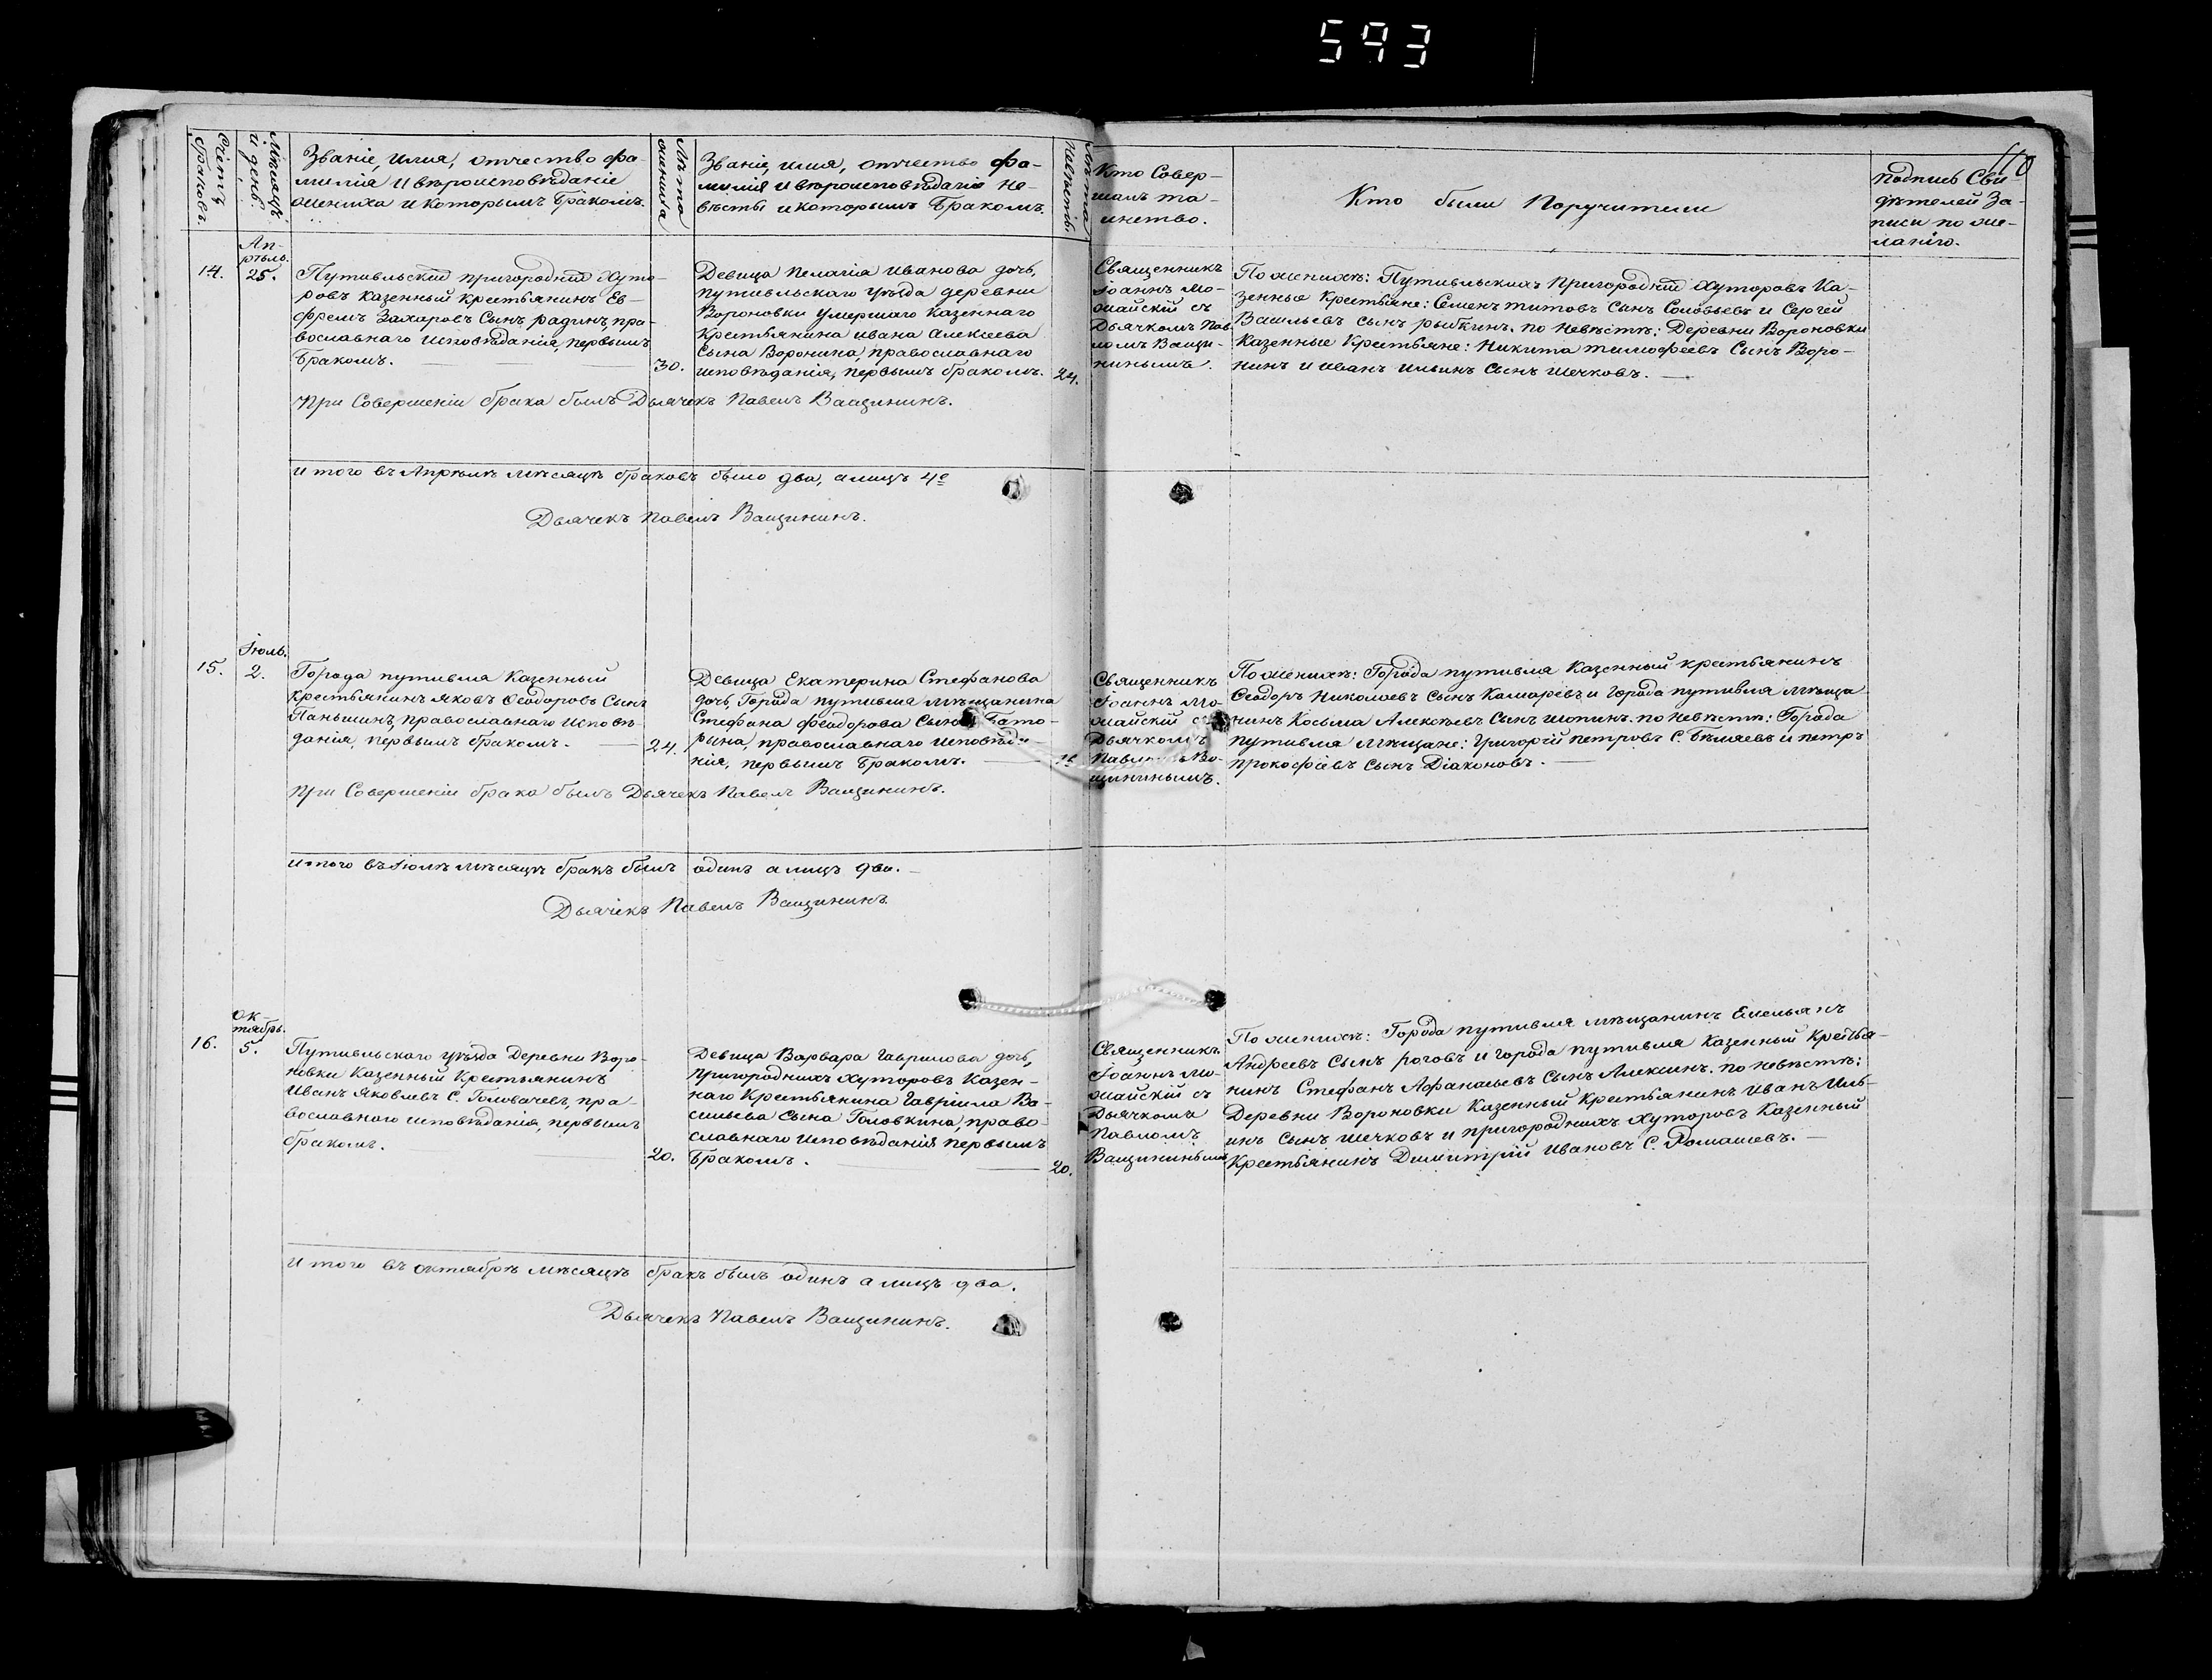 593
110
Счетъ браковъ.
Мѣсяцъ и день.
Званіе, имя, отчество фа-
милія и вѣроисповѣданіе
жениха и которымъ бракомъ.
Лѣта жениха
Званіе, имя, отчество фа-
милія и вѣроисповѣданіе не-
вѣсты и которымъ бракомъ.
Лѣта невѣсты
Кто совер-
шалъ та-
инство.
Кто были Поручители
Подпись Сви-
дѣтелей За-
писи по же-
ланію.
14.
Ап-
рѣль.
25.
Путивльскій пригородній Хуто-
ровъ казенный крестьянинъ Ев-
фремъ Захаровъ Сынъ радинъ, пра-
вославнаго исповѣданія, первымъ
бракомъ.
30.
Девица Пелагія Иванова дочь,
путивльскаго уѣзда деревни
Вороновки умершаго Казеннаго
Крестьянина ивана Алексеева
Сына Воронина, православнаго
исповѣданія, первымъ бракомъ.
24.
Священникъ
Іоаннъ Мо-
жайскій съ
Дьячкомъ Пав-
ломъ Ващи-
нинымъ.
По женихѣ: Путивльскихъ Пригородній Хуторовъ Ка-
зенные Крестьяне: Семенъ титовъ Сынъ Соловьевъ и Сергей
Васильевъ Сынъ рыбкинъ. по невѣстѣ: Деревни Вороновки
Казенные Крестьяне: Никита тимофеевъ Сынъ Воро-
нинъ и иванъ ильинъ Сынъ Шечковъ.
При Совершеніи брака былъ Дьячекъ Павелъ Ващининъ.
И того въ Апрѣлѣ мѣсяцѣ браковъ было два, а лицъ 4е
Дьячекъ Павелъ Ващининъ.
15.
Іюль.
2.
Города путивля Казенный
крестьянинъ яковъ Ѳеодоровъ Сынъ
Паньшинъ, православнаго исповѣ-
данія, первымъ бракомъ.
24.
Девица Екатерина Стефанова
дочь, Города путивля мѣщанина
Стефана феодорова Сына Бато-
рына, православнаго исповѣда-
нія, первымъ бракомъ.
Священникъ
Іоаннъ Мо-
жайскій съ
Дьячкомъ
Павломъ Ва-
щининымъ.
По женихѣ: Города путивля Казенный крестьянинъ
Ѳеодоръ Николаевъ Сынъ Комаревъ и города путивля мѣща-
нинъ Косьма Алексѣевъ Сынъ шопинъ. по невѣстѣ: Города
путивля Мѣщане: Григорій петровъ С. Бѣляевъ и петръ
прокофіевъ Сынъ Діаконовъ.
При Совершеніи брака былъ Дьячекъ Павелъ Ващининъ.
И того въ Іюлѣ мѣсяцѣ бракъ былъ одинъ а лицъ два.
Дьячекъ Павелъ Ващининъ.
16.
Ок-
тябрь.
5.
Путивльскаго уѣзда Деревни Воро-
новки Казенный Крестьянинъ
Иванъ Яковлевъ С. Головачевъ, пра-
вославнаго исповѣданія, первымъ
бракомъ.
20.
Девица Варвара Гаврилова дочь,
Пригороднихъ Хуторовъ Казен-
наго Крестьянина Гавріила Ва-
сильева Сына Головкина, право-
славнаго исповѣданія первымъ
бракомъ.
20.
Священникъ
Іоаннъ Мо-
жайскій съ
Дьячкомъ
Павломъ
Ващининымъ
По женихѣ: Города путивля мѣщанинъ Емельянъ
Андреевъ Сынъ роговъ и города путивля Казенный Крестья-
нинъ Стефанъ Афанасьевъ Сынъ Алехинъ. по невѣстѣ:
Деревни Вороновки Казенный Крестьянинъ иванъ Иль-
инъ Сынъ Шечковъ и пригороднихъ Хуторовъ Казенный
Крестьянинъ Димитрій Ивановъ С. Ромашевъ.
И того въ Октябрѣ мѣсяцѣ бракъ былъ одинъ а лицъ два.
Дьячекъ Павелъ Ващининъ.